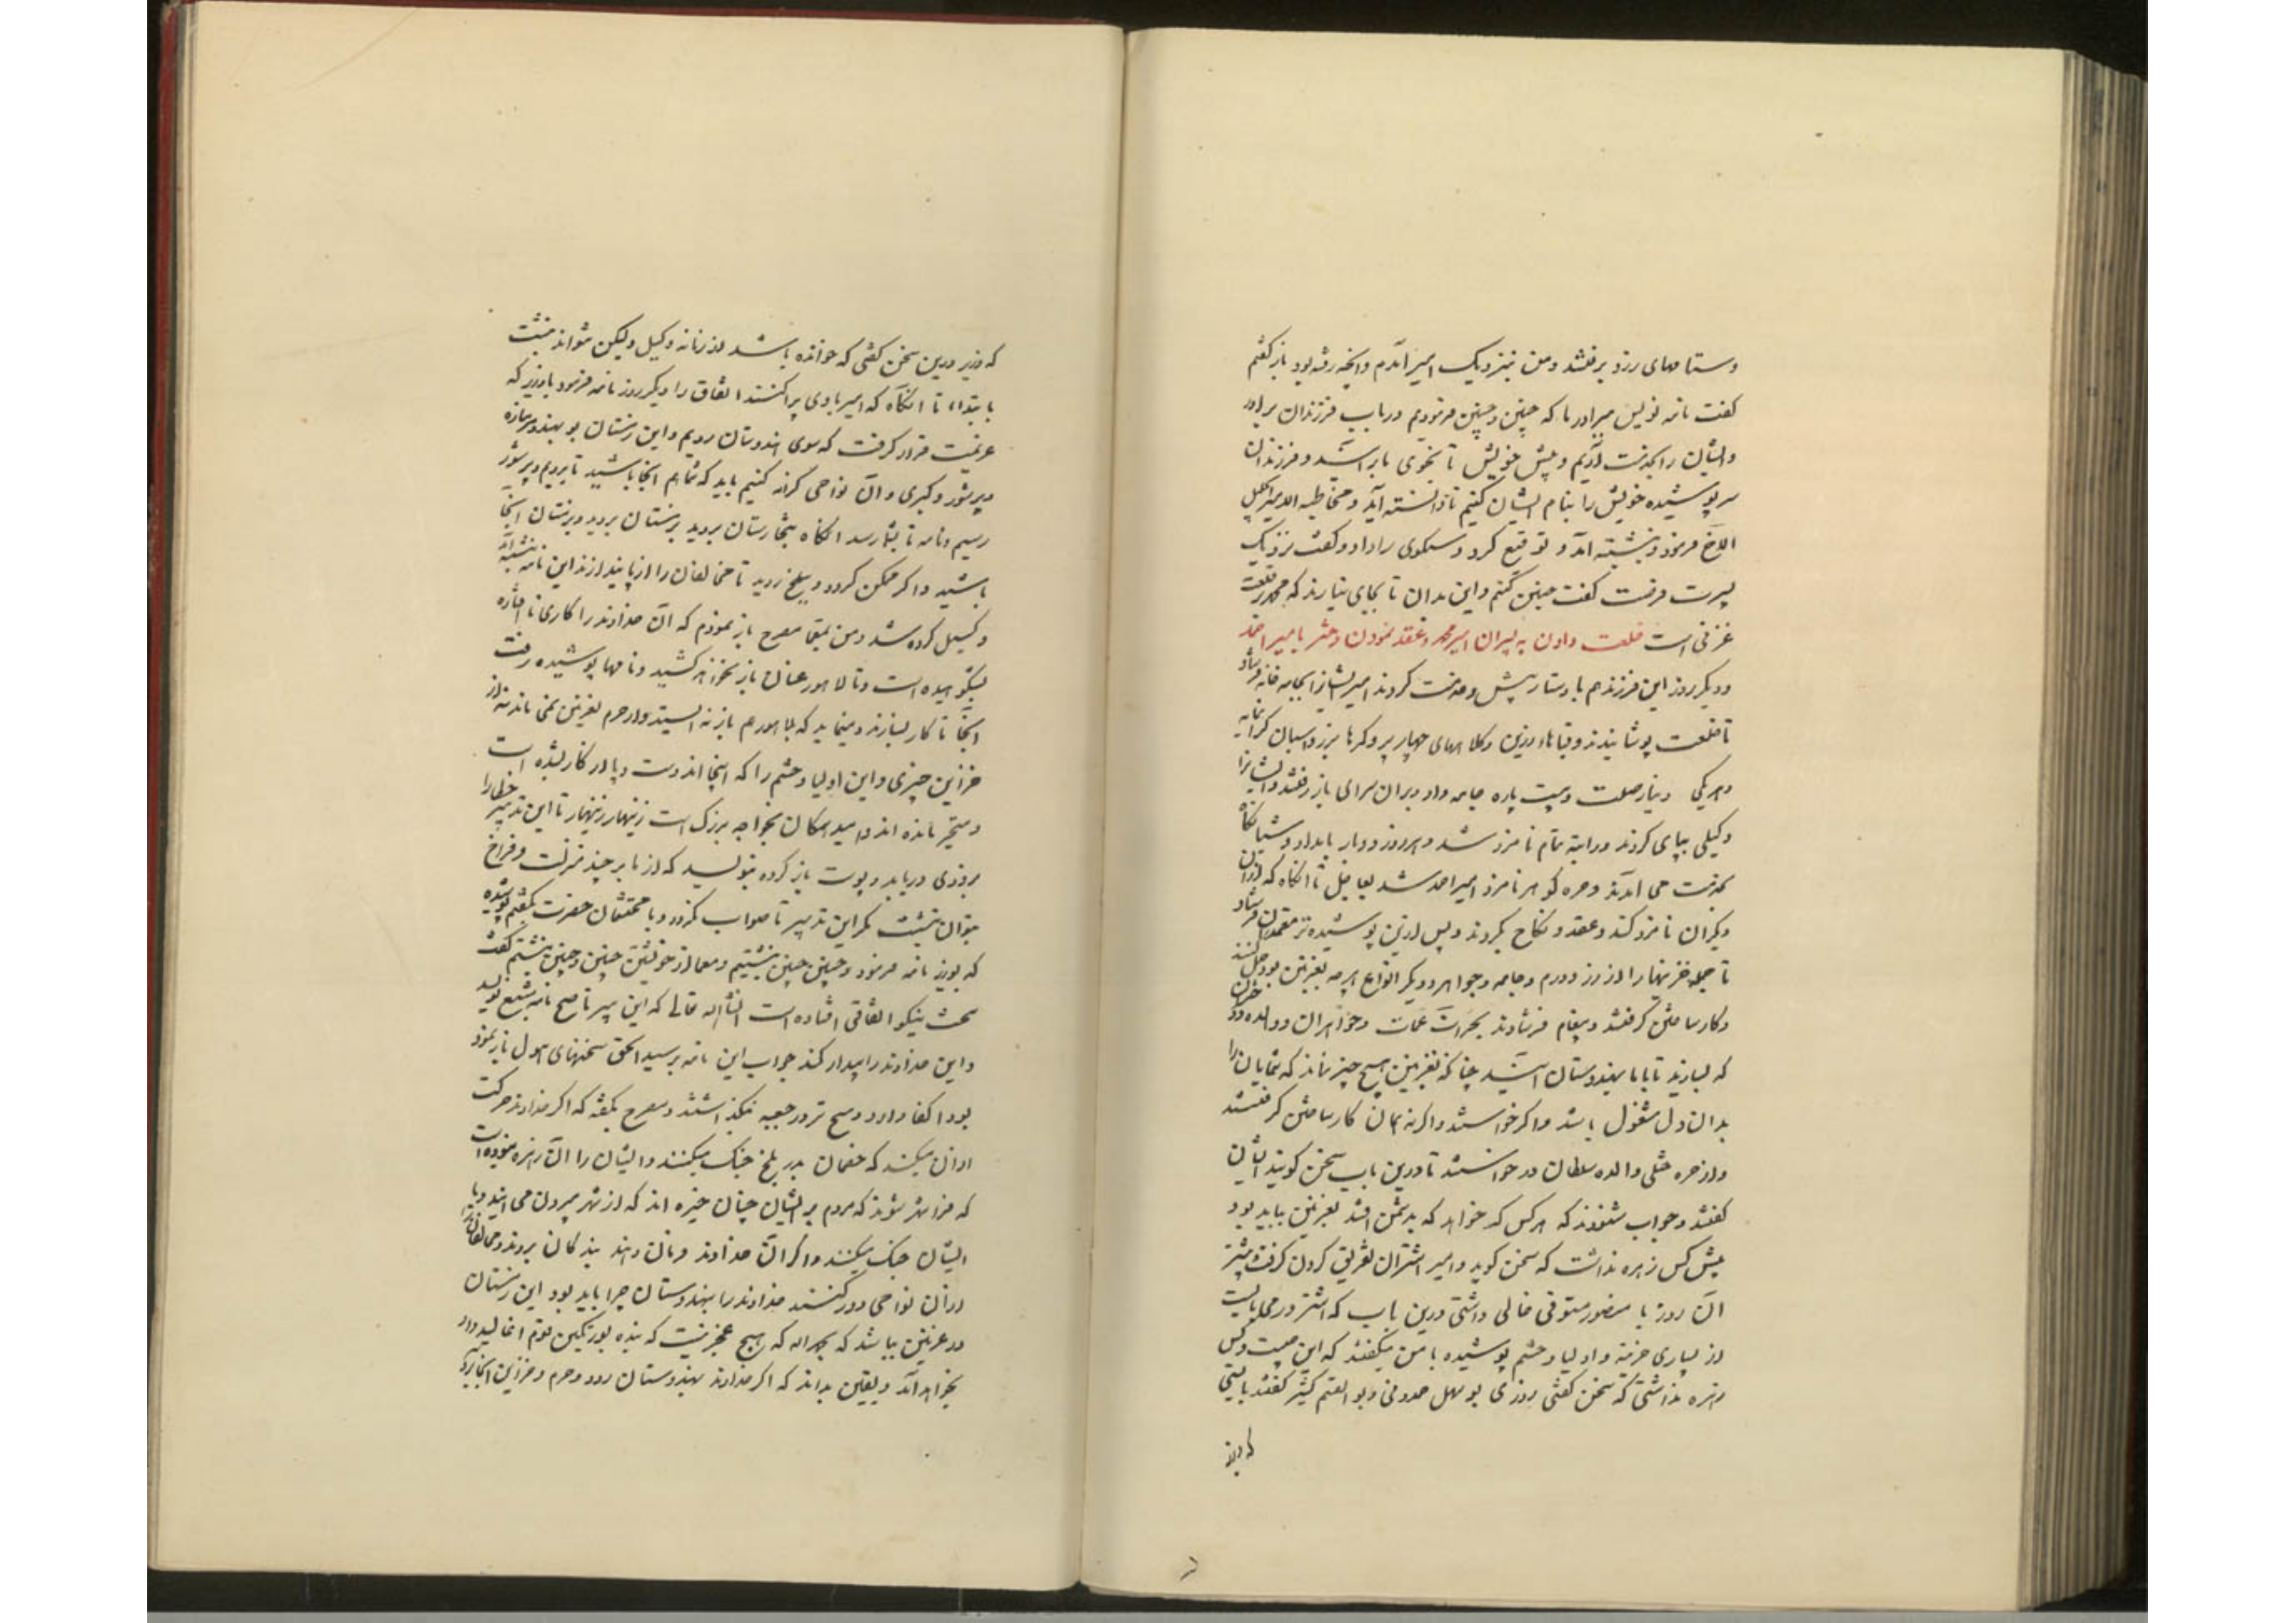 وستامهای زرد برفتند و من بنزدیک امیر آمدم و آنچه رفته بود باز گفتم
گفت نامه نویس برادر ما که چنین و چنین فرمودیم در باب فرزندان برادر
و ایشان را بخدمت آریم و پیش خویش تا بخوی ما برآیند و فرزندان
سر پوشیده خویش را بنام ایشان کنیم تا دانسته آید و مخاطبه الامیر الجلیل
الاخ فرمود و نبشته آمد و توقیع کرد و سنکوی را داد و گفت نزدیک
پسرت فرست گفت چنین کنم و این بدان تا بجای نیارند که محمد در قلعت
غزنی است خلعت دادن به پسران امیر محمد و عقد نمودن دختر با امیر احمد
و دیگر روز این فرزند هم با دستار پیش و خدمت کردند امیر ایشانرا بجامه خانه فرستاد
تا خلعت پوشانیدند و قباهاء زرین و کلاههای چهار پر و کمرها بزر و اسبان گرانمایه
و هر یکی دینار صلت و بیست پاره جامه داد و بران سرای باز رفتند و ایشانرا
وکیلی بپای کردند و راتبه تمام نامزد شد و هر روز دو بار بامداد و شبانگاه
بخدمت می آمدند و حره گوهر نامزد امیر احمد شد بعاجل تا آنگاه که از آن
دیگران نامزد کند و عقد و نکاح بکردند و پس ازین پوشیده تر معتمدان فرستاد
تا جمله خزینها را از زر و درم و جامه و جواهر و دیگر انواع هر چه بغزنین بود حمل کنند
و کار ساختن گرفتند و پیغام فرستادند بحرات عمات و خواهران و والده و دختران
که بسازید تا با ما بهندوستان آیید چنانکه بغزنین هیچ چیز نماند که شمایان را
بدان دل مشغول باشد و اگر خواستند و اگر نه همان کار ساختن گرفتند
و از حره ختلی والده سلطان در خواستند تا درین باب سخن گویند ایشان
گفتند و جواب شنودند که هر کس که خواهد که بدشمن افتد بغزنین بباید بود
پیش کس زهره نداشت که سخن گوید و امیر اشتران تفریق کردن گرفت و بیشتر
آن روز با منصور مستوفی خالی داشتی درین باب که اشتر در می بایست
از بسیاری خزینه و اولیا و حشم پوشیده با من میگفتند که این چیست و کس
زهره نداشتی که سخن گفتی روزی بو سهل حمدونی و بو القسم کثیر گفتند بایستی
که وزیر
که وزیر درین سخن گفتی که خوانده باشد از زبانه وکیل ولیکن نتواند نبشت
بابتدا، تا آنگاه که امیر با وی پراکند اتفاق را دیگر روز نامه فرمود با وزیر که
عزیمت قرار گرفت که سوی هندوستان رویم و این زمستان بویهند و مرمناره
و پرشور و کیری و آن نواحی کرانه کنیم باید که شما هم آنجا باشید تا برویم و پرشور
رسیم و نامه تا بشما رسد آنگاه بتخارستان بروید بزمستان بروید و زمستان آنجا
باشید و اگر ممکن گردد و ببلخ روید تا مخالفان را از پا بیندازند این نامه نبشته آمد
و گسیل کرده شد و من بمعما مصرح باز نمودم که آن خداوند را کاری نا افتاده
بشکوهیده است و تا لاهور عنان باز نخواهد کشید و نامها پوشیده رفت
آنجا تا کار بسازند و مینماید که بلاهور هم باز نه ایستد و از حرم بغزنین نمی ماند نه از
خزاین چیزی و این اولیا و حشم را که اینجا اند دست و پا از کار بشده است
و متحیر مانده اند و امید همگان بخواجه بزرگ است زینهار زینهار تا این تدبیر خطا را
بزودی دریابد و پوست باز کرده بنویسید که از ما بر چند منزلت و فراخ
بتوان نبشت مگر این تدبیر تا صواب بگردد و با محتشمان حضرت بگفتم پوشیده
که بوزیر نامه فرمود و چنین چنین نبشتیم و معما از خویشتن چنین و چنین نبشتم گفتند
سخت نیکو اتفاقی افتاده است انشاالله تعالی که این پیر ناصح نامه مشبع نویسد
و این خداوند را بیدار کند جواب این نامه برسید الحق سخنهای هول باز نموده
بود اکفا وار و هیچ تیر در جعبه نگذاشته و مصرح بگفته که اگر خداوند حرکت
از آن میکند که خصمان بدر بلخ جنگ میکنند و ایشان را آن زهره نبوده است
که فرا شهر شوند که مردم بر ایشان چنان چیره اند که از شهر بیرون می آیند و با
ایشان جنگ میکنند و اگر آن خداوند فرمان دهد بندگان بروند و مخالفان را
از آن نواحی دور کنند خداوند را بهندوستان چرا باید بود این زمستان
در غزنین بباشد که بحمد الله که هیچ عجز نیست که بنده بورتکین قوم اغالید و او
بخواهد آمد و یقین بداند که اگر خداوند بهندوستان رود و حرم و خزاین آنجا برد